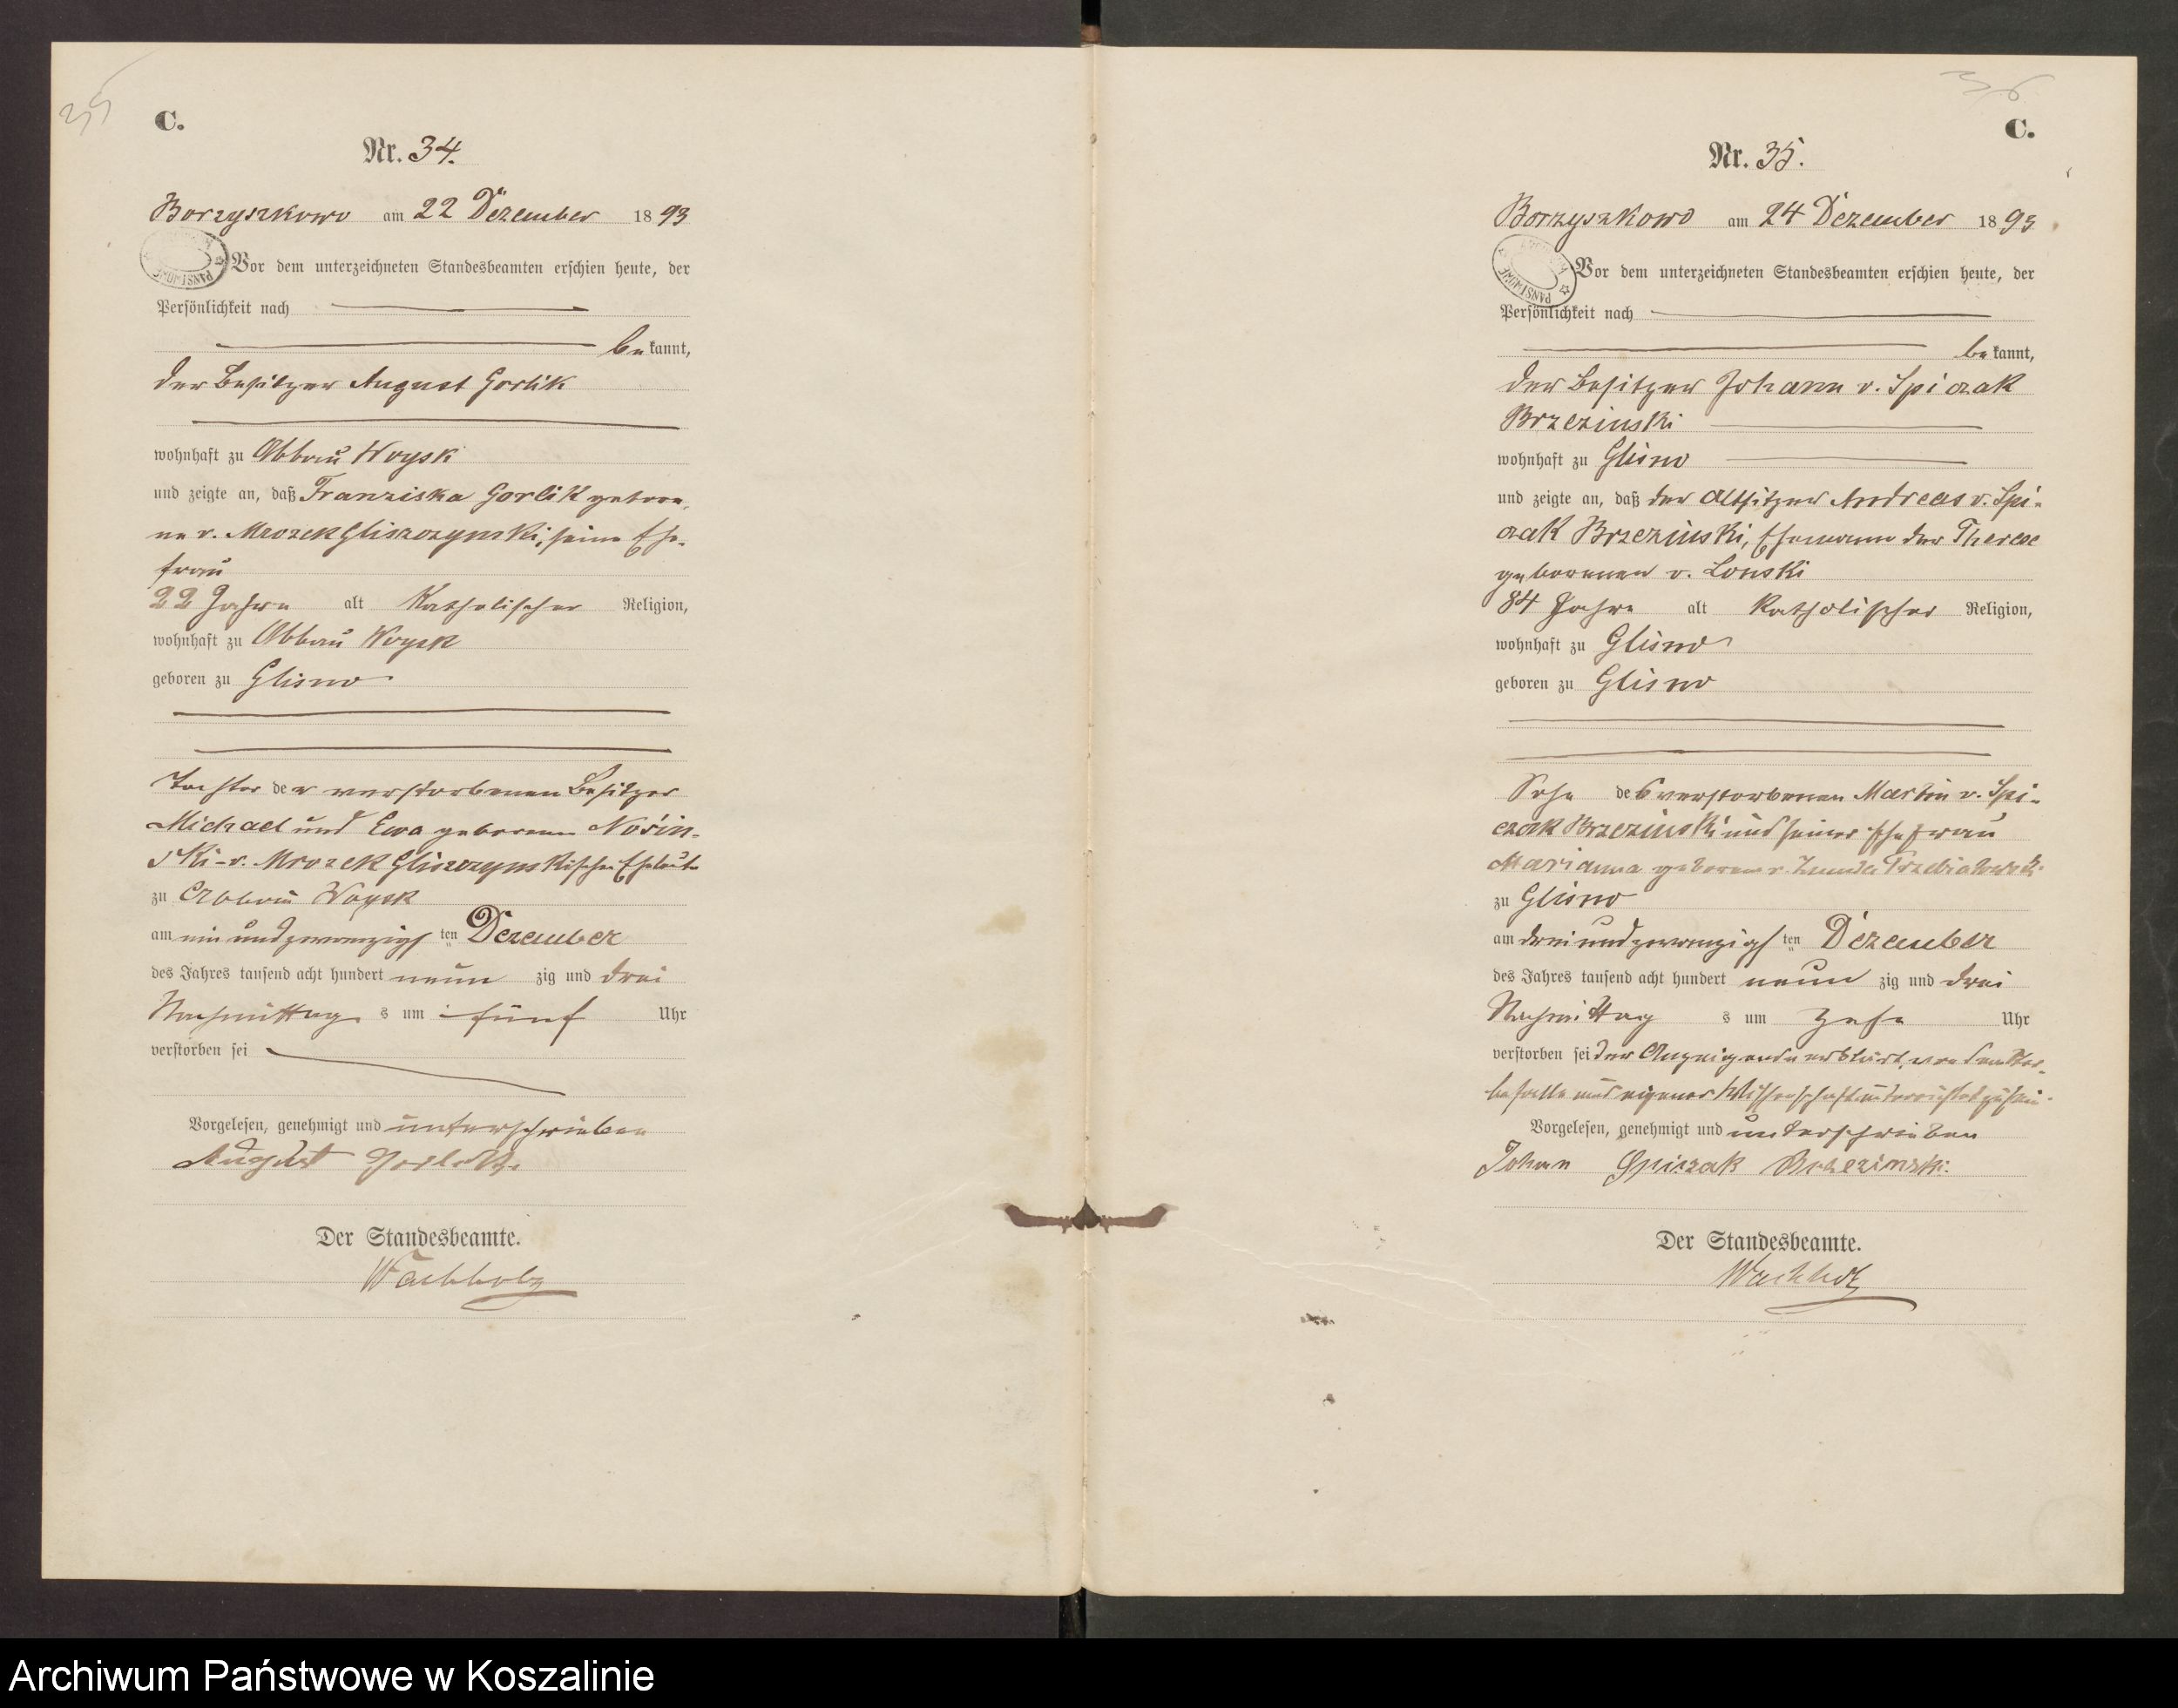 35
C.
Nr. 34.
Borzyszkowo am 22 Dezember 1893
Vor dem unterzeichneten Standesbeamten erschien heute, der
Persönlichkeit nach
bekannt,
der Besitzer August Gorlik
wohnhaft zu Abbau Woysk
und zeigte an, daß Franziska Gorlik gebore-
ne v. Mrozek Gliszczynski, seine Ehe-
frau
22 Jahre alt Katholischer Religion,
wohnhaft zu Abbau Woysk
geboren zu Glisno
Tochter der verstorbenen Besitzer
Michael und Ewa geborene Nosin-
ski-v. Mrozek Gliszczynskischen Eheleute
zu Abbau Woysk
am ein und zwanzigsten Dezember
des Jahres tausend acht hundert neunzig und drei
Nachmittags um fünf Uhr
verstorben sei
Vorgelesen, genehmigt und unterschrieben
August
Der Standesbeamte.
Wachholz
36
C.
Nr. 35.
Borzyszkowo am 24 Dezember 1893
Vor dem unterzeichneten Standesbeamten erschien heute, der
Persönlichkeit nach
bekannt,
der Besitzer Johann v. Spiczak
Brzezinski
wohnhaft zu Glisno
und zeigte an, daß der Altsitzer Andreas v. Spi-
czak Brzezinski, Ehemann der Therese
geborenen v. Lonski
84 Jahre alt Katholischer Religion,
wohnhaft zu Glisno
geboren zu Glisno
Sohn des verstorbenen Martin v. Spi-
czak Brzezinski und seiner Ehefrau
Marianna geborene v. Trzebiatowski
zu Glisno
am drei und zwanzigsten Dezember
des Jahres tausend acht hundert neunzig und drei
Nachmittags um zehn Uhr
verstorben sei der Anzeigende erklärt, von dem Ster-
befalle aus eigener Wissenschaft unterrichtet zu sein.
Vorgelesen, genehmigt und unterschrieben
Johan Spiczak Brzezinski
Der Standesbeamte.
Wachholz
Archiwum Państwowe w Koszalinie